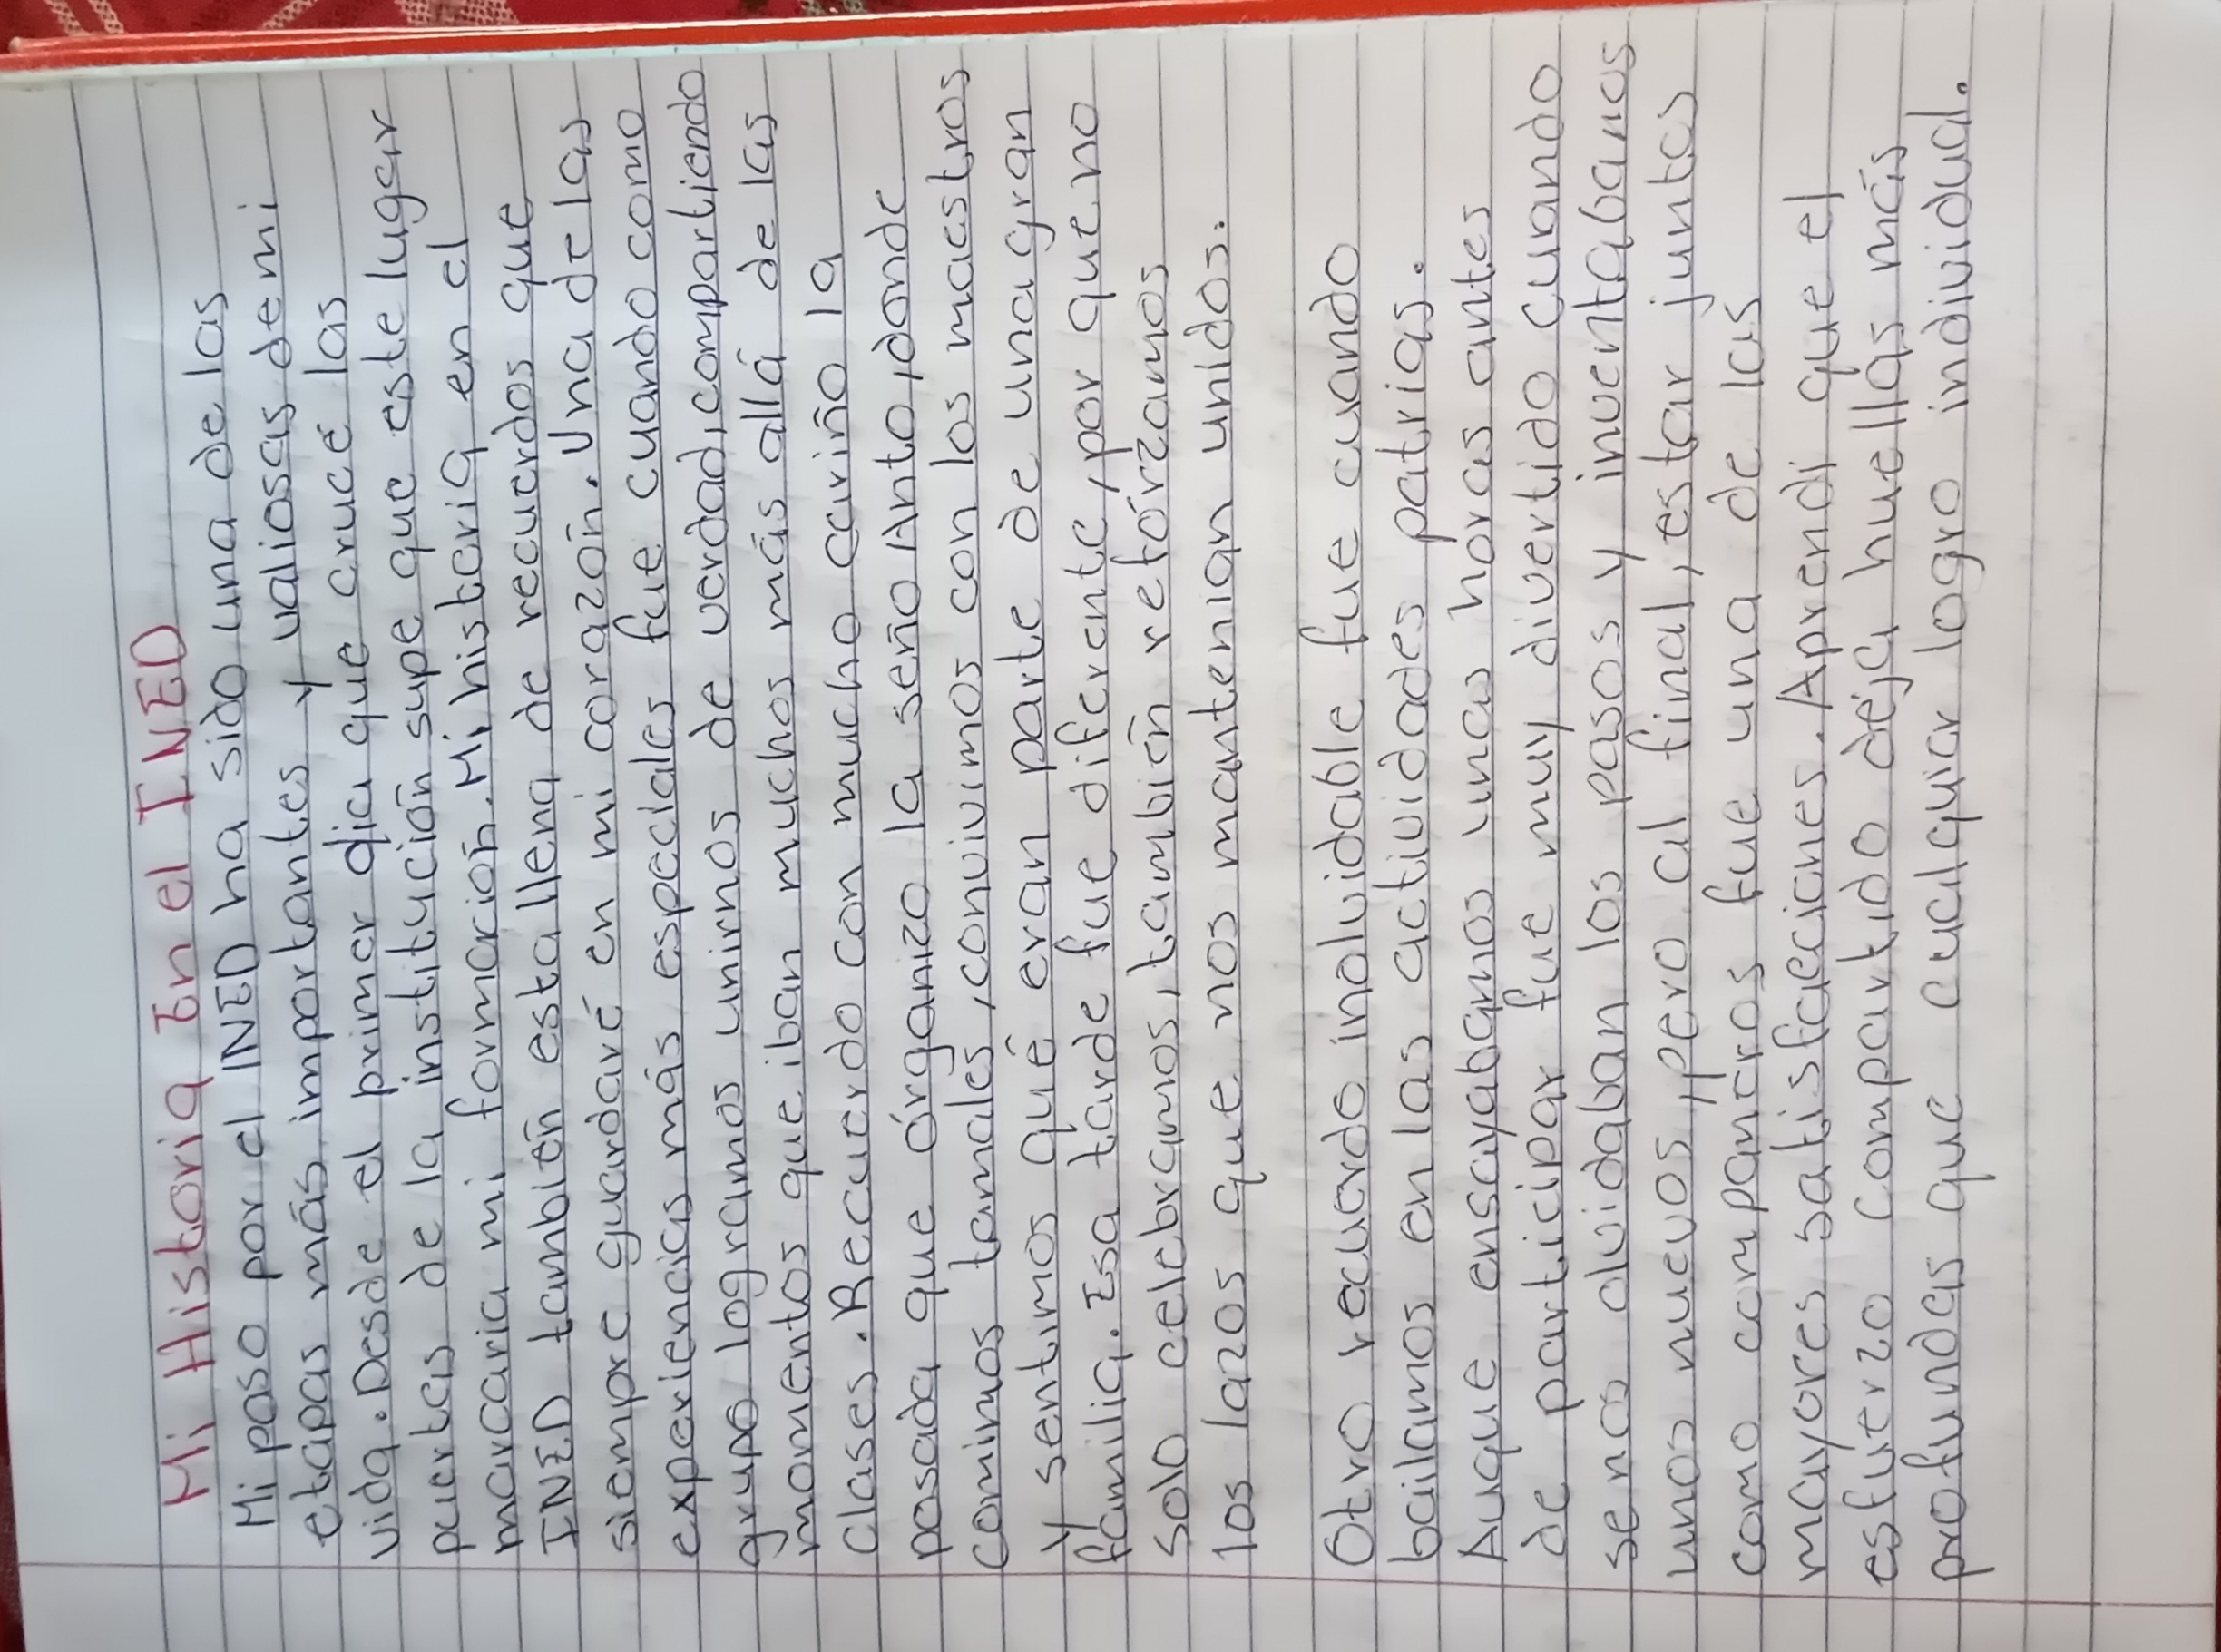 Mi Historia En el INED
Mi paso por el INED ha sido una de las
etapas más importantes y valiosas de mi
vida. Desde el primer dia que crucé las
puertas de la institución supe que este lugar
marcaria mi formación. Mi historia en el
INED también esta llena de recuerdos que
siempre guardaré en mi corazón. Una de las
experiencias más especiales fue cuando como
grupo logramos unirnos de verdad, compartiendo
momentos que iban muchos más allá de las
clases. Recuerdo con mucho cariño la
posada que órganizo la seño Anto, donde
comimos tamales, convivimos con los maestros
y sentimos qué eran parte de una gran
familia. Esa tarde fue diferente, por que no
solo celebramos, también refórzamos
los lazos que nos mantenian unidos.
Otro recuerdo inolvidable fue cuando
bailamos en las actividades patrias.
Auque ensayabamos unas horas antes
de participar fue muy divertido cuando
senos olvidaban los pasos y inventabamos
unos nuevos, pero al final, estar juntos
como compañeros fue una de las
mayores satisfacciones. Aprendí que el
esfuerzo compartido déja huellas más
profundas que cualquier logro individual.